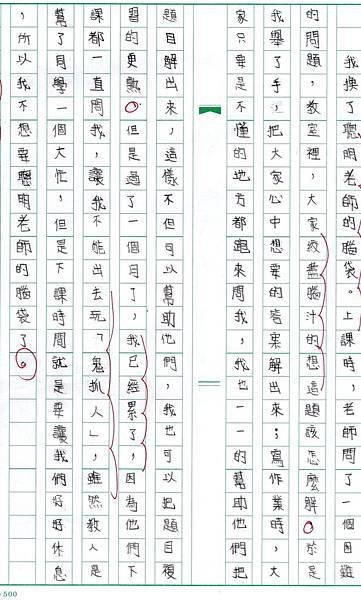 我換了聰明老師的腦袋。上課時，老師問了一個困難
的問題，教室裡，大家絞盡腦汁的想這題該怎麼解。於是
我舉了手，把大家心中想要的答案解出來；寫作業時，大
家只要是不懂的地方都跑來問我，我也一一的幫助他們把
題目解出來，這樣不但可以幫助他們，我也可以把題目複
習的更熟。但是過了一個月了，我已經累了，因為他們下
課都一直問我，讓我不能出去玩「鬼抓人」，雖然教人是
幫了同學一個大忙，但是下課時間就是要讓我們好好休息
，所以我不想要聰明老師的腦袋了。
500